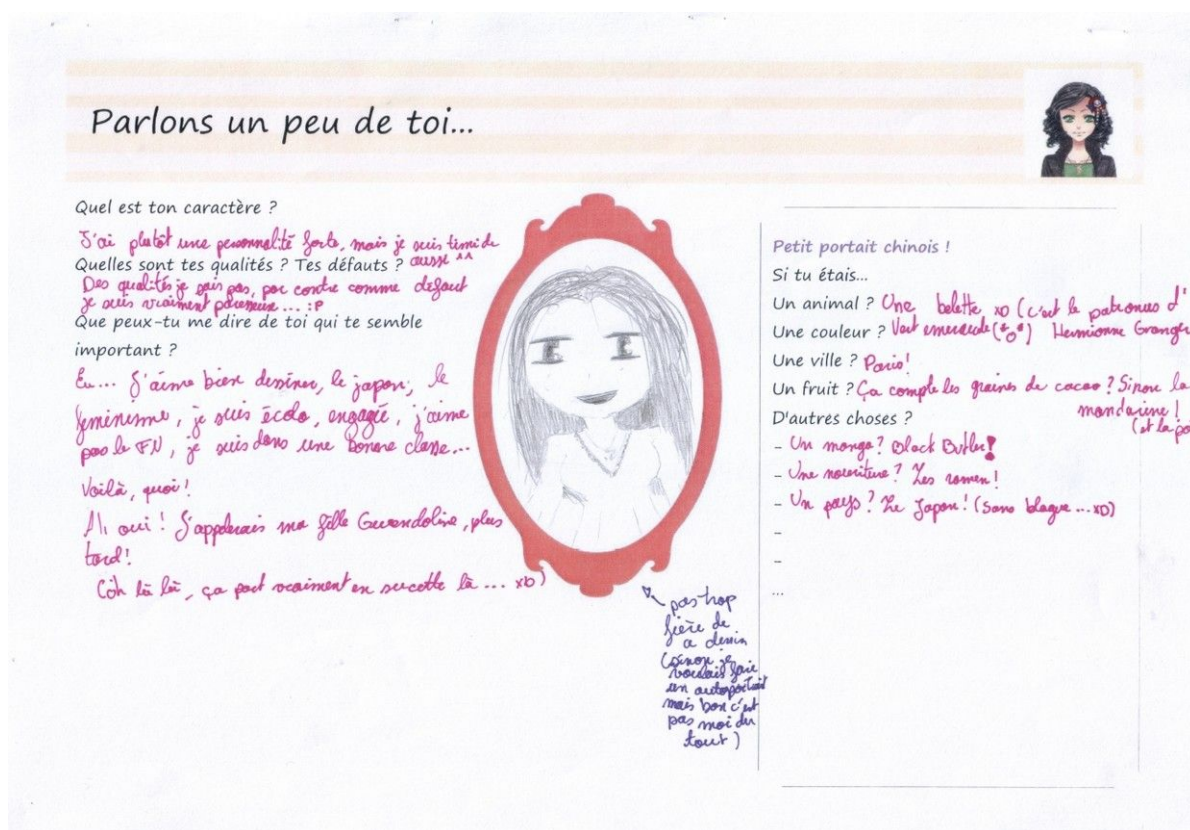 Parlons un peu de toi...
Quel est ton caractère ?
J'ai plutôt une personnalité forte, mais je suis timide
aussi ^^
Quelles sont tes qualités ? Tes défauts ?
Des qualités je sais pas, par contre comme défaut
je suis vraiment ... :P
Que peux-tu me dire de toi qui te semble
important ?
Eu... J'aime bien dessiner, le japon, le
feminisme, je suis écolo, engagée, j'aime
pas le FN, je suis dans une bonne classe...
Voilà, quoi !
Ah oui ! J'appelerais ma fille Gwendoline, plus
tard !
(Oh là là, ça part vraiment en sucette là ... xD)
pas trop
fière de
dessin
(sinon je
voulais faire
un autoportrait
mais bon c'est
pas moi du
tout)
Petit portait chinois !
Si tu étais...
Un animal ? Une belette xD (c'est le patronus d'
Une couleur ? Vert emeraude (*o*) Hermionne Granger
Une ville ? Paris !
Un fruit ? Ça compte les graines de cacao ? Sinon la
mandarine !
(et la
D'autres choses ?
- Un manga ? Black Butler !
- Une nourriture ? Les ramen !
- Un pays ? Le Japon ! (Sans blague ... xD)
-
-
...